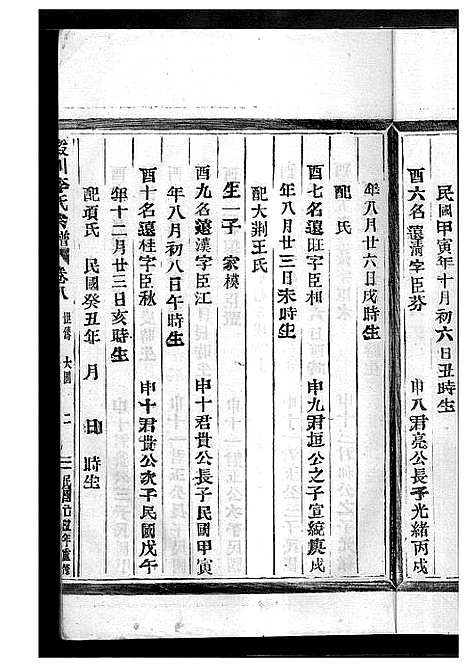 民國甲寅年十月初六日丑時生
酉六名還清字臣芬　申八君亮公長子光緒丙戌
年八月廿六日戌時生
配　氏
酉七名還旺字臣和　申九君垣公之子宣統庚戌
年八月廿三日未時生
配大荆王氏
生一子　家模
酉九名還漢字臣江　申十君貴公長子民國甲寅
年八月初八日午時生
酉十名還桂字臣秋　申十君貴公次子民國戊午
年十二月廿三日亥時生
配項氏　民國癸丑年　月　日　時生
川李氏宗譜　卷八　世傳　大園　二　民國　年重修